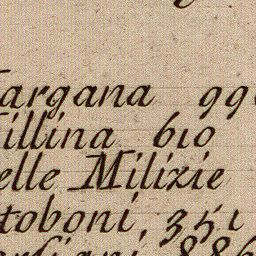 argana 99
illina 610
elle Milizie
toboni, 351